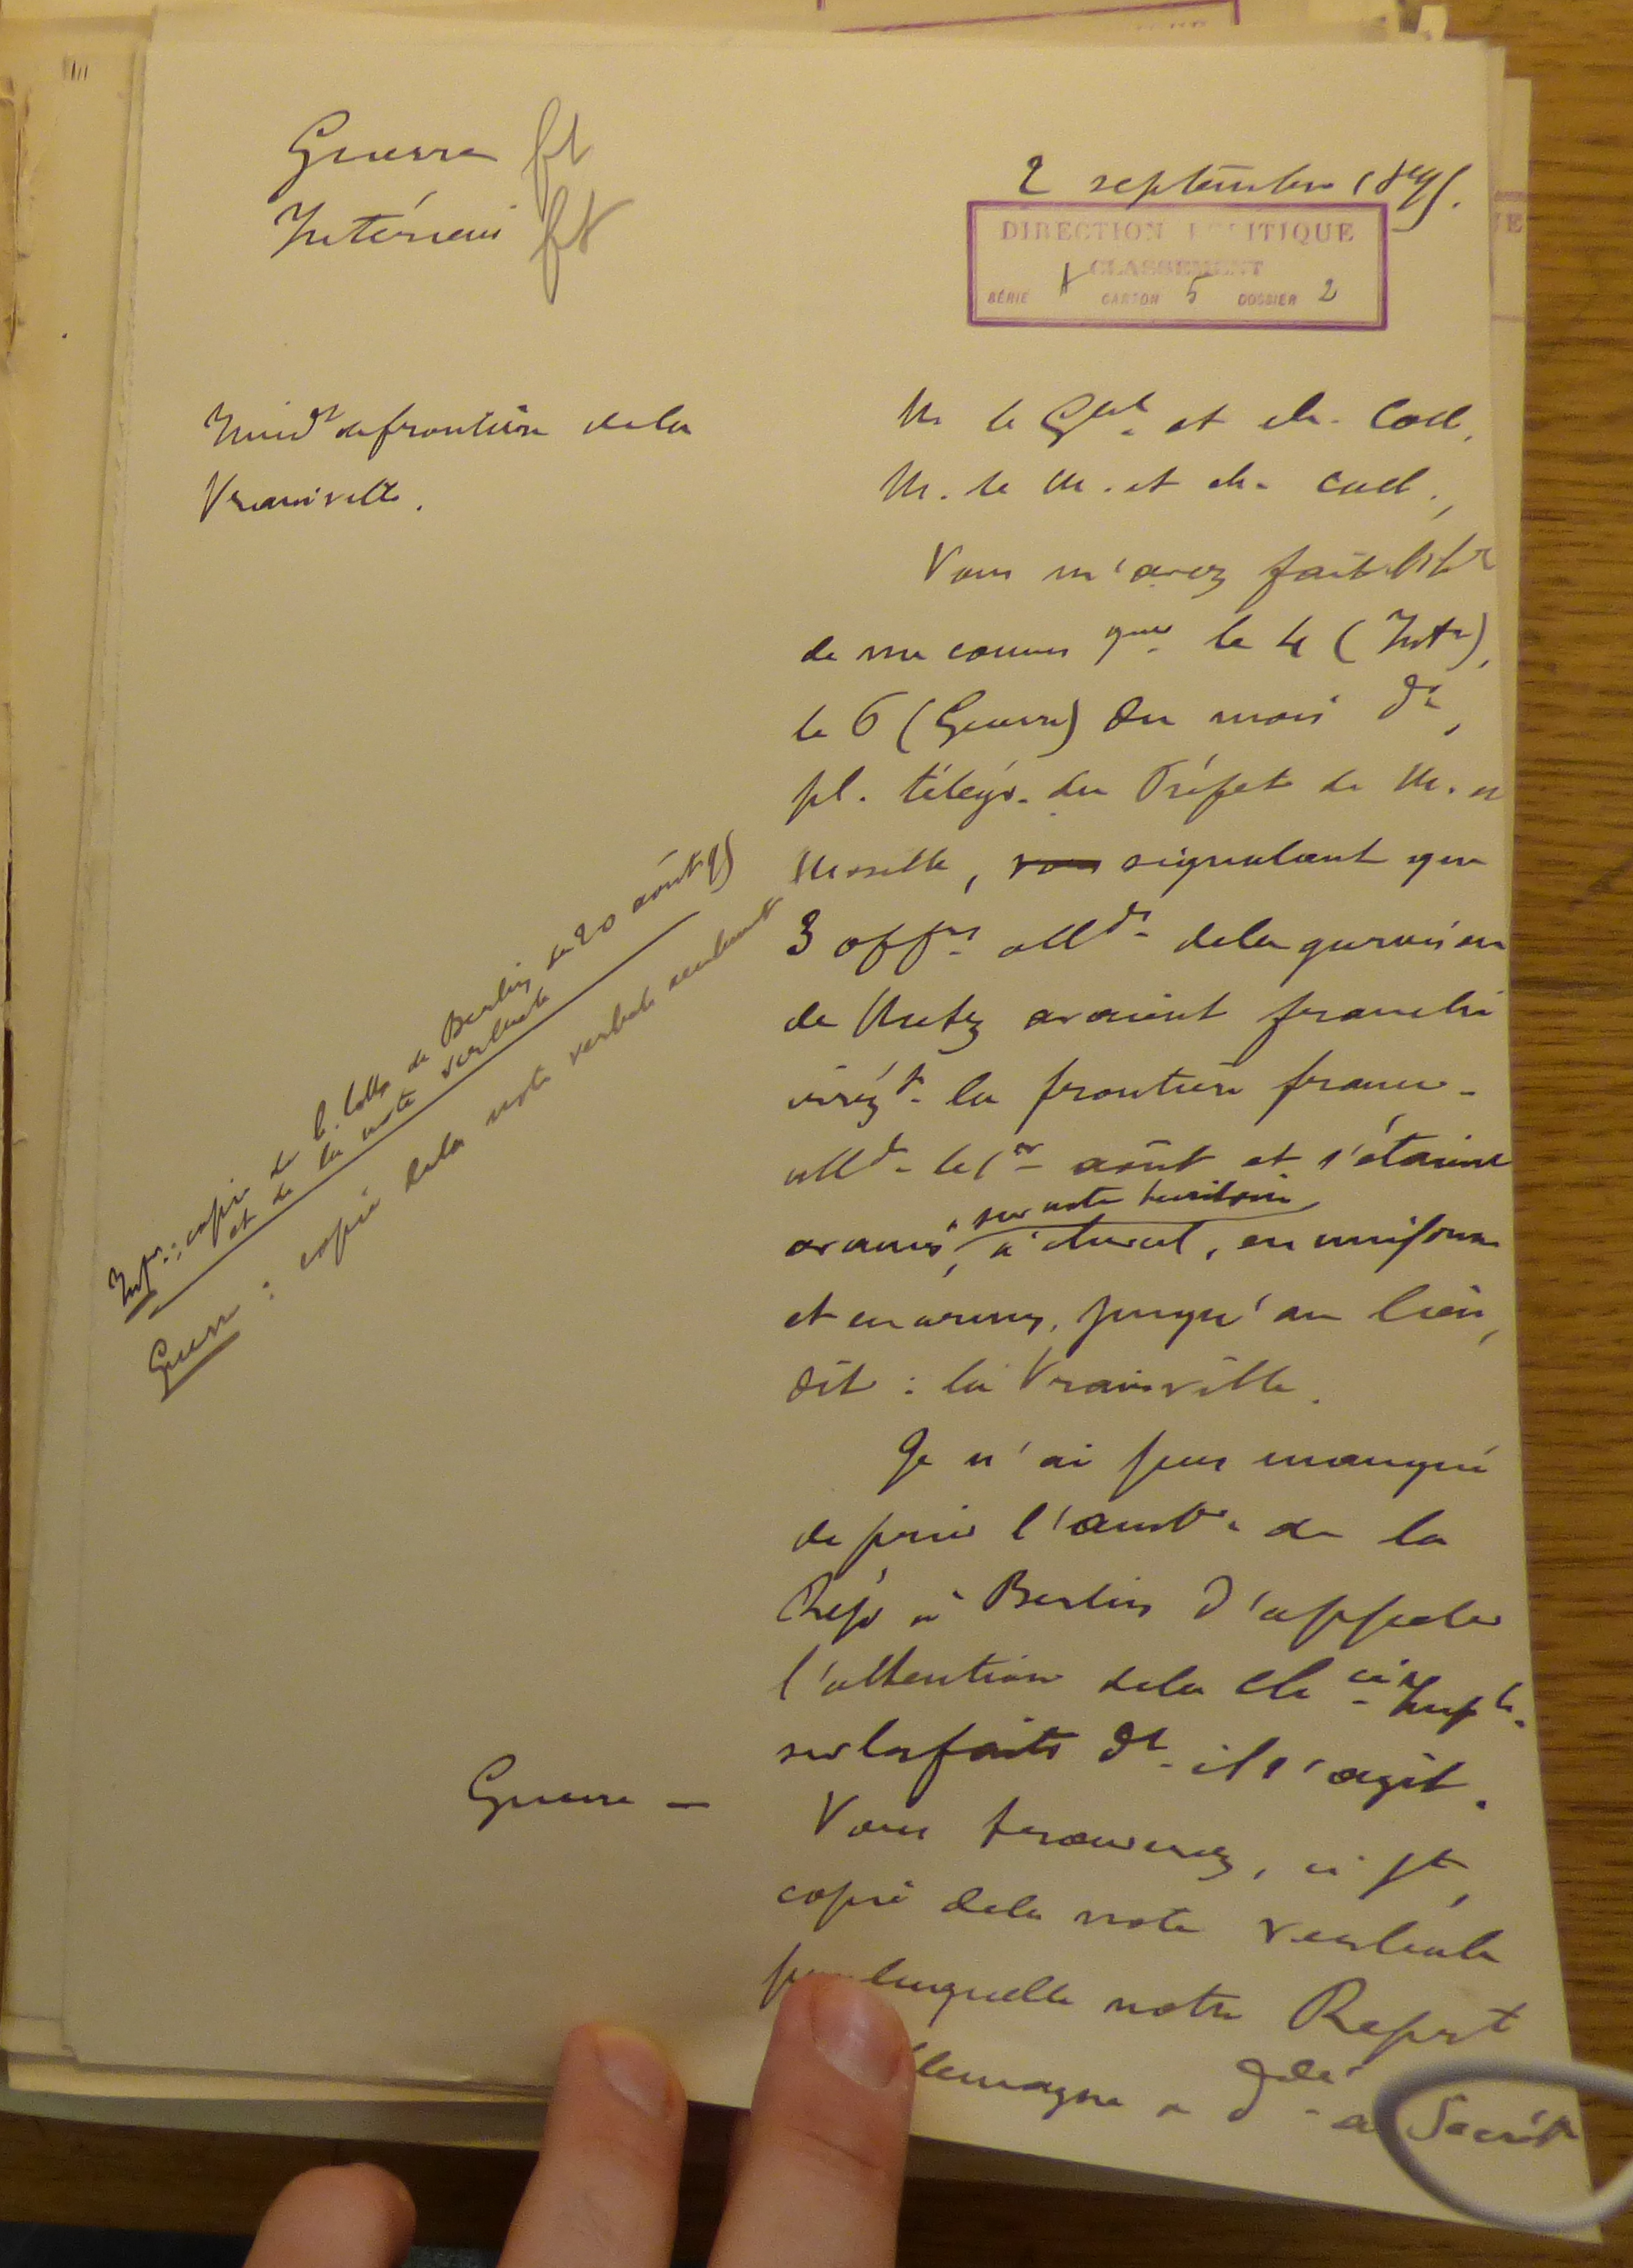 Guerre ft
Intérieur ft
2 septembre 1895.
DIRECTION POLITIQUE
CLASSEMENT
SÉRIE A CARTON 5 DOSSIER 2
Incidt de frontière de la
Vrainville.
M. le Gal et ch. Coll.
M. le M. et ch. coll.,
Vous m'avez fait l'hr
de me commquer le 4 (Intr),
le 6 (Guerre) du mois dr,
pl. télégr. du Préfet de M. et
Moselle, vous signalant que
3 offrs allds de la garnison
de Metz avaient franchi
irrégt la frontière franco-
allde le 1er août et s'étaient
avancés, sur notre territoire
à cheval, en uniforme
et en armes, jusqu'au lieu
dit : la Vrainville.
Je n'ai pas manqué
de prier l'ambr de la
Rép à Berlin d'appeler
l'attention de la Chcie Imple
sur les faits dt il s'agit.
Guerre —
Vous trouverez, ci jt,
copie de la note verbale
par laquelle notre Reprt
llemagne a ddé a Secrét
Intr : copie de l. de Berlin du 20 août 95
et de la note verbale
Guerre : copie de la note verbale seulement